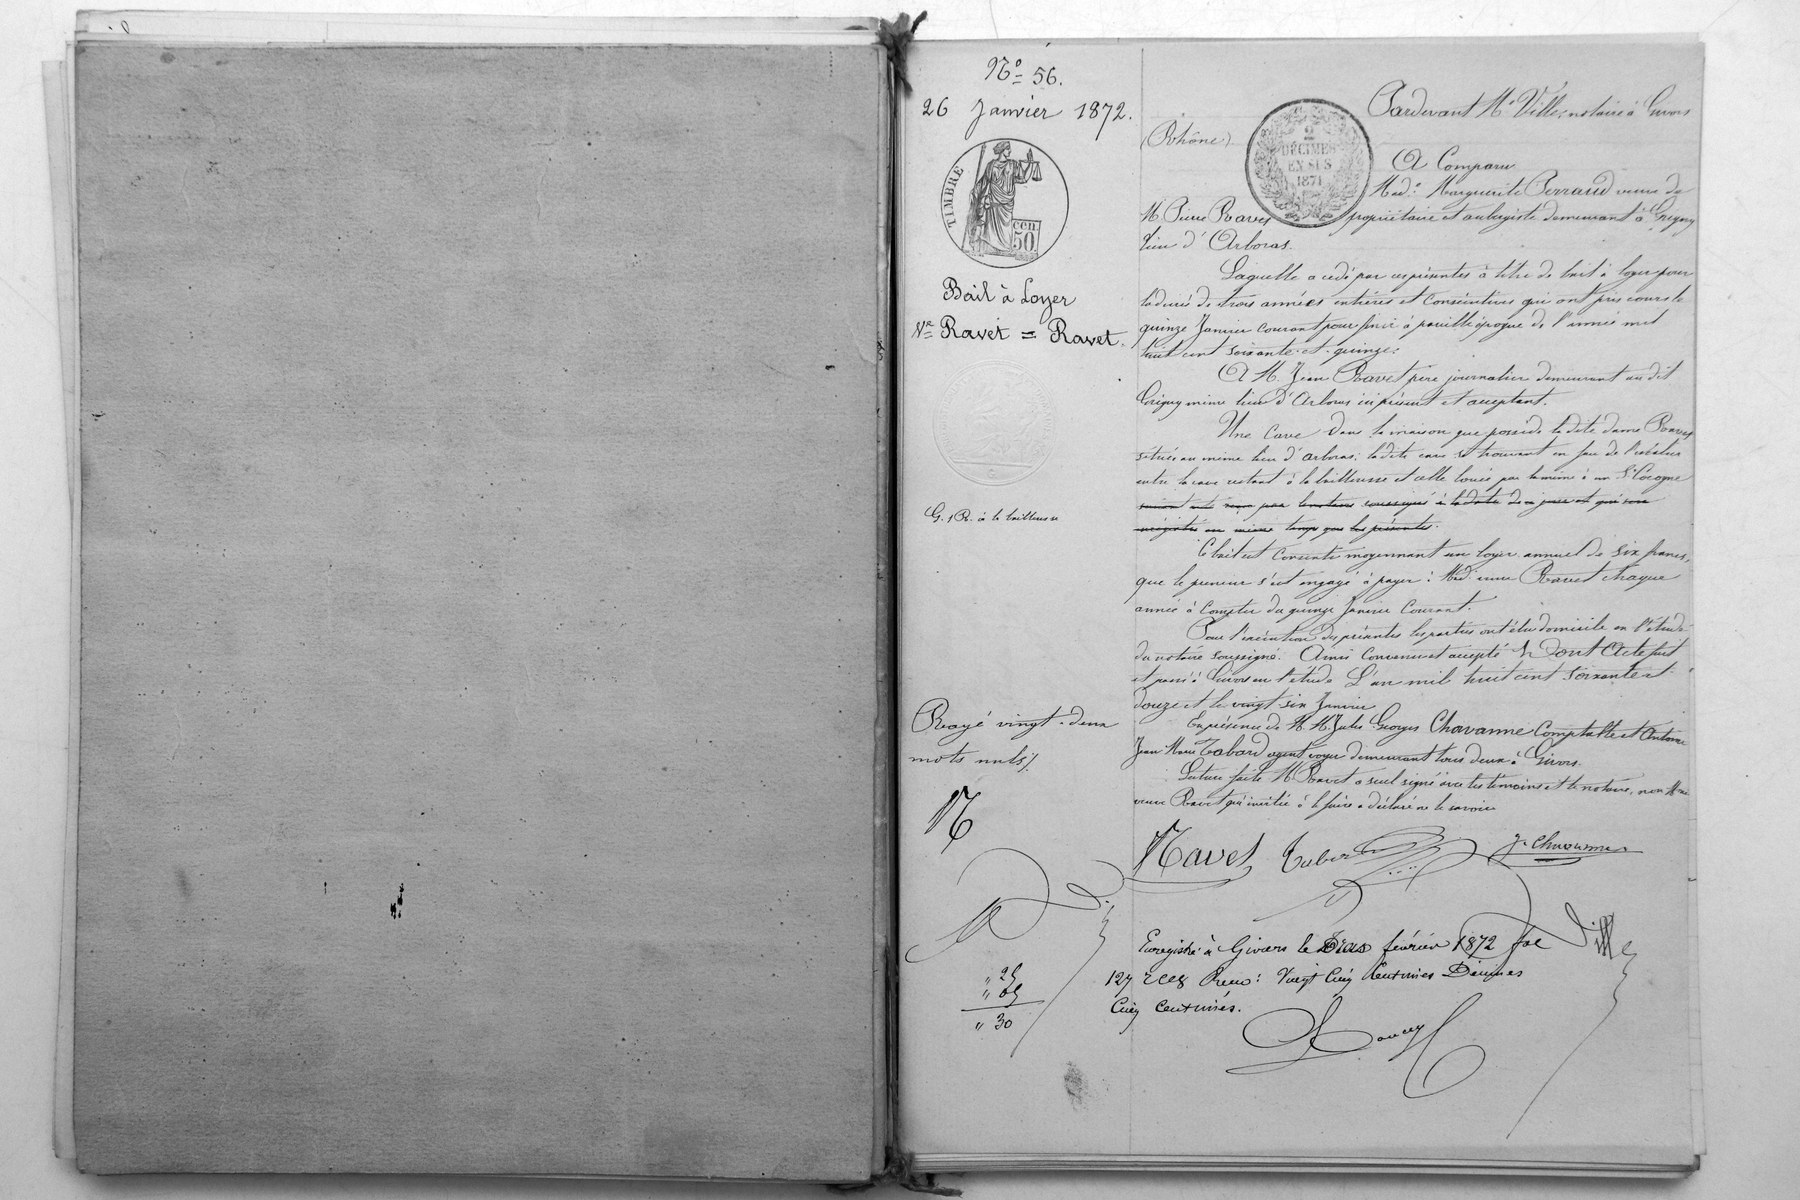 No 56.
26 Janvier 1872.
TIMBRE
50 cen
Bail à Loyer
Ve Ravet = Ravet.
G. 1 R. à la bailleresse
Rayé vingt-deux
mots nuls
R
" 25
" 05
" 30
Pardevant Me Ville, notaire à Givors
(Rhône)
2
DÉCIMES
EN SUS
1871
A Comparu
Made Marguerite Perraud veuve de
M. Pierre Ravet propriétaire et aubergiste demeurant à Grigny
lieu d'Arboras.
Laquelle a cédé par ces présentes à titre de bail à loyer pour
la durée de trois années entières et consécutives qui ont pris cours le
quinze Janvier courant pour finir à pareille époque de l'année mil
huit cent soixante-et-quinze.
A M. Jean Ravet père journalier demeurant au dit
Grigny même lieu d'Arboras ici présent et acceptant.
Une cave dans la maison que possède la dite dame Ravet
située au même lieu d'arboras; la dite cave se trouvant en face de l'escalier
entre la cave restant à la bailleresse et celle louée par la même à un Sr Cocogne
suivant acte reçu par le notaire soussigné à la date de ce jour et qui sera
enregistré en même temps que les présentes.
Ce bail est consenti moyennant un loyer annuel de six francs,
que le preneur s'est engagé à payer à Made veuve Ravet chaque
année à compter du quinze Janvier courant.
Pour l'exécution des présentes les parties ont élu domicile en l'étude
du notaire soussigné. Ainsi convenu et accepté Dont Acte fait
et passé à Givors en l'étude L'an mil huit cent soixante et
douze et le vingt-six Janvier
En présence de M.M. Jules Georges Chavanne comptable et Antoine
Jean Marie Tabard agent voyer demeurant tous deux à Givors.
Lecture faite M. Ravet a seul signé avec les témoins et le notaire, non Made
veuve Ravet qui invitée à le faire a déclaré ne le savoir
Ravet Tabard J. Chavanne
Ville
Enregistré à Givors le Deux février 1872 fol
127 r c 8 Reçu: Vingt Cinq Centimes Décimes
Cinq Centimes.